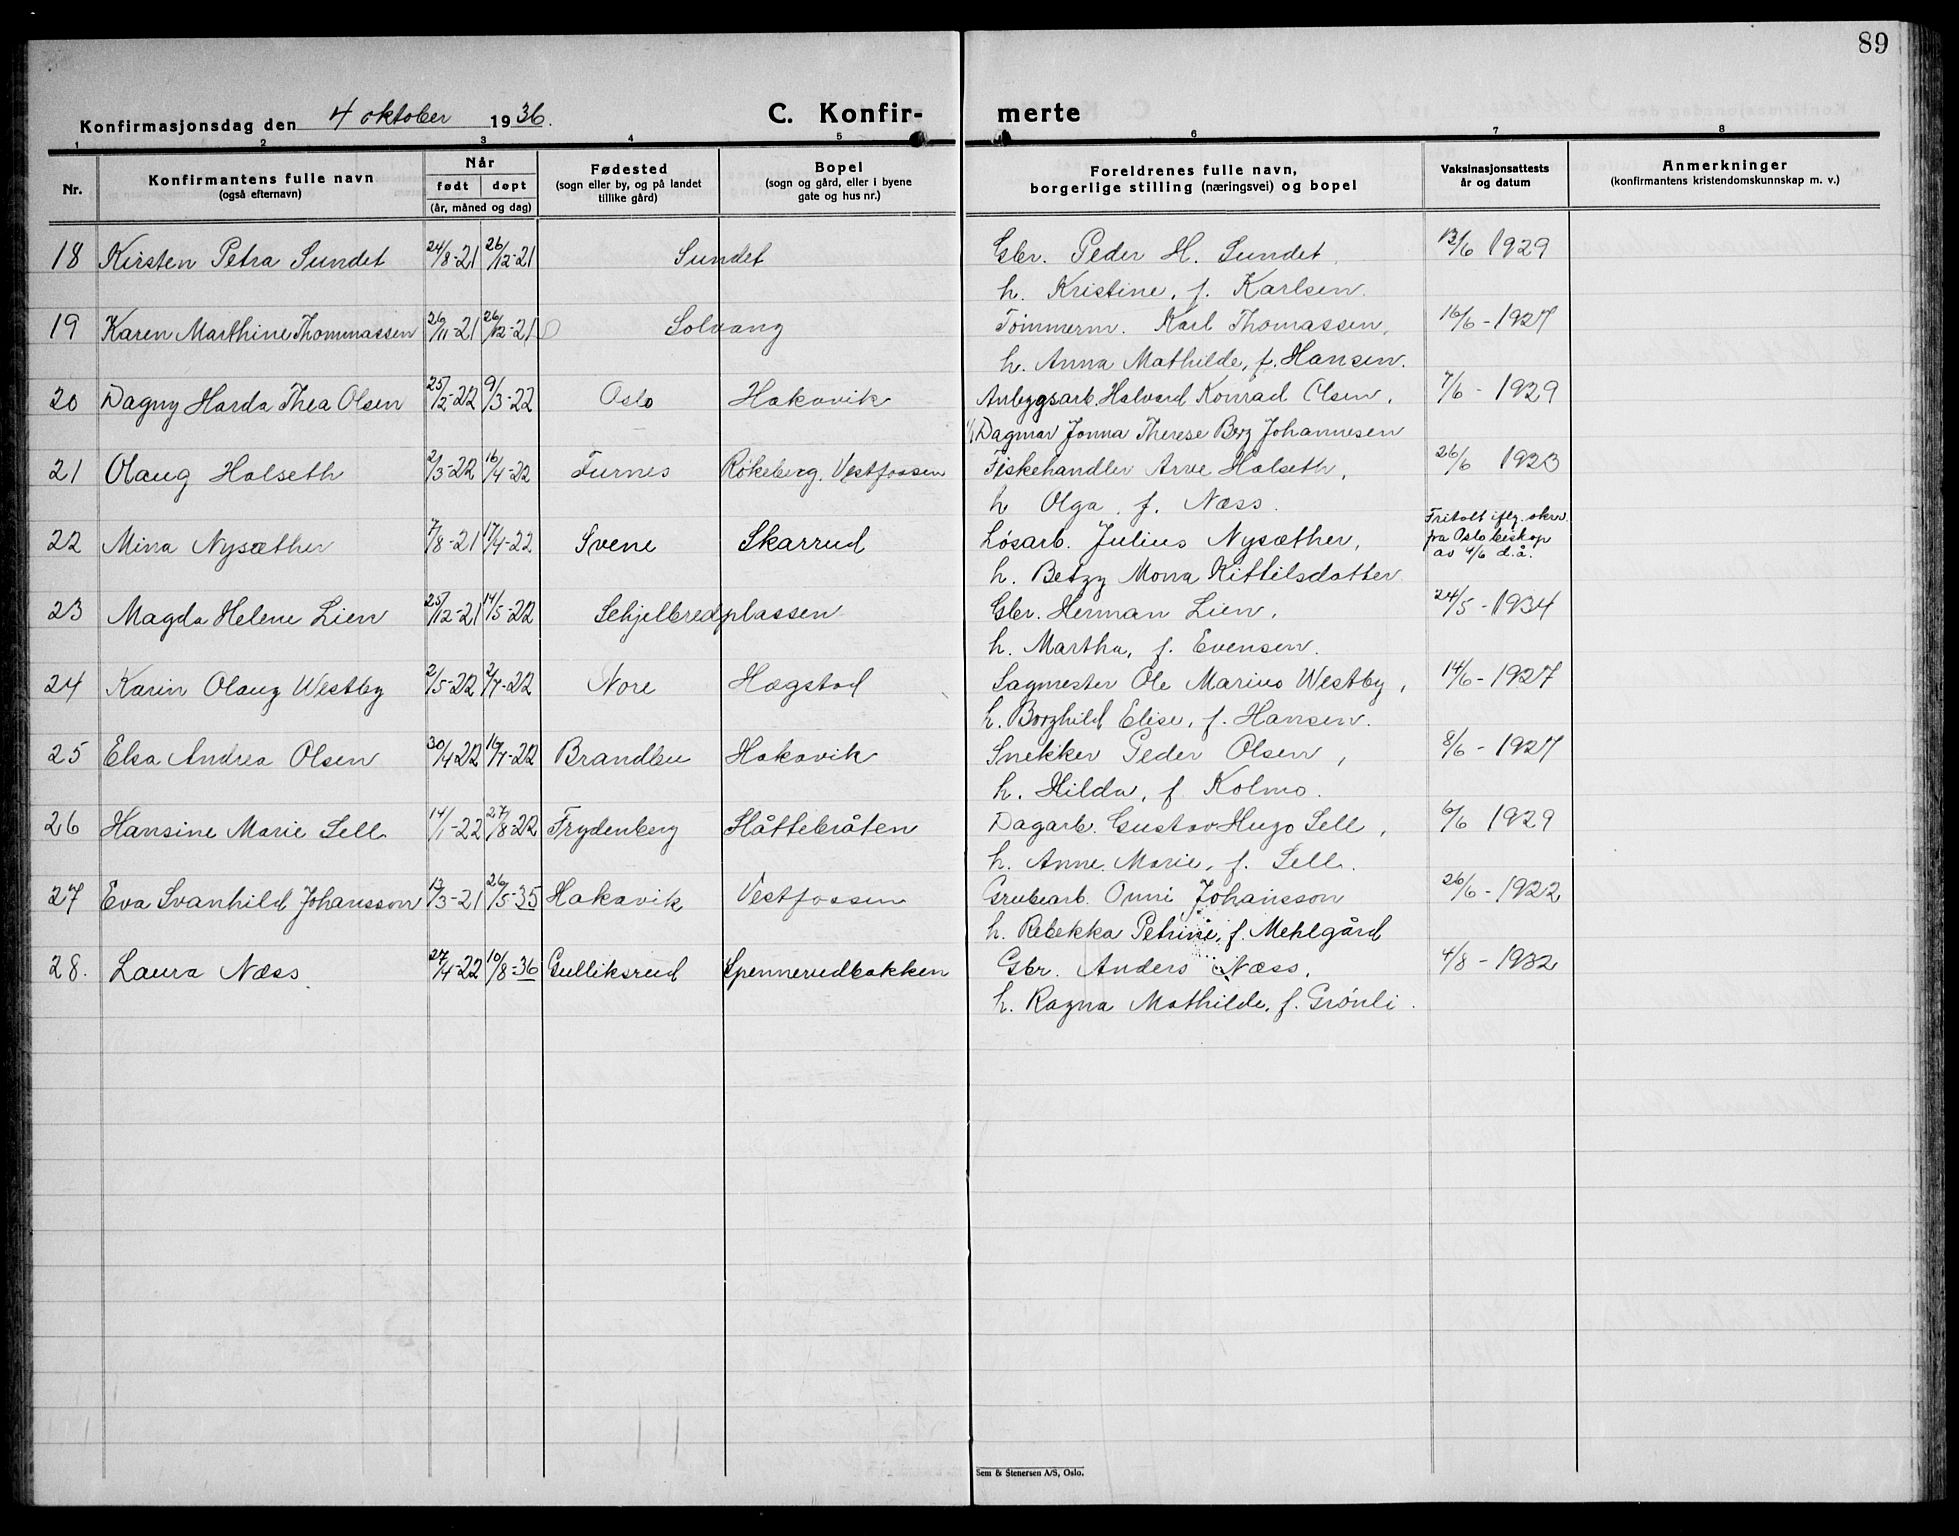 89
Konfirmasjonsdag den 4 oktober 1936. C. Konfir- merte
1 2 3 4 5 6 7 8
Nr. Konfirmantens fulle navn (også efternavn) Når født døpt (år, måned og dag) Fødested (sogn eller by, og på landet tillike gård) Bopel (sogn og gård, eller i byene gate og hus nr.) Foreldrenes fulle navn, borgerlige stilling (næringsvei) og bopel Vaksinasjonsattests år og datum Anmerkninger (konfirmantens kristendomskunnskap m. v.)
18 Kirsten Petra Sundet 24/8-21 26/12-21 Sundet Gbr. Peder H. Sundet, 13/6 1929
h. Kristine, f. Karlsen.
19 Karen Marthine Thommassen 26/11-21 26/12-21 Solvang Tømmerm. Karl Thomassen, 16/6-1927
h. Anna Mathilde, f. Hansen.
20 Dagny Harda Thea Olsen 25/2-22 9/3-22 Oslo Hakavik Anlegsarb. Halvard Konrad Olsen, 7/6-1929
Dagmar Jonna Therese Borg Johannesen
21 Olaug Halseth 2/3-22 16/4-22 Furnes Røkeberg, Vestfossen Fiskehandler Arve Halseth, 26/6 1923
h Olga, f. Næss.
22 Mina Nysæther 7/8-21 17/4-22 Svene Skarrud Løsarb. Julius Nysæther, Fritatt iflg. skrv. fra Oslo biskop av 4/6 d.å.
h. Betzy Mona Kittilsdatter
23 Magda Helene Lien 25/12-21 14/5-22 Schjelbredplassen Gbr. Herman Lien, 24/5-1934
h. Martha, f. Evensen.
24 Karin Olaug Westby 2/5-22 2/7-22 Nore Hægstad Sagmester Ole Marius Westby, 14/6-1927
h. Borghild Elise, f. Hansen.
25 Elsa Andrea Olsen 30/4-22 16/7-22 Brandbu Hakavik Snekker Peder Olsen, 8/6-1927
h. Hilda, f Kolmo.
26 Hansine Marie Sell 14/1-22 27/8-22 Frydenberg Håttebråten Dagarb. Gustav Hugo Sell, 6/6 1929
h. Anne Marie, f. Sell.
27 Eva Svanhild Johansson 13/3-21 26/5-35 Hakavik Vestfossen Grubearb. Onni Johansson 26/6-1922
h. Rebekka Petrine, f. Mehlgård
28. Laura Næss 27/4-22 10/8-36 Gulliksrud Spennerudbakken Gbr. Anders Næss, 4/8-1932
h. Ragna Mathilde, f. Grønli.
Sem & Stenersen A/S, Oslo.